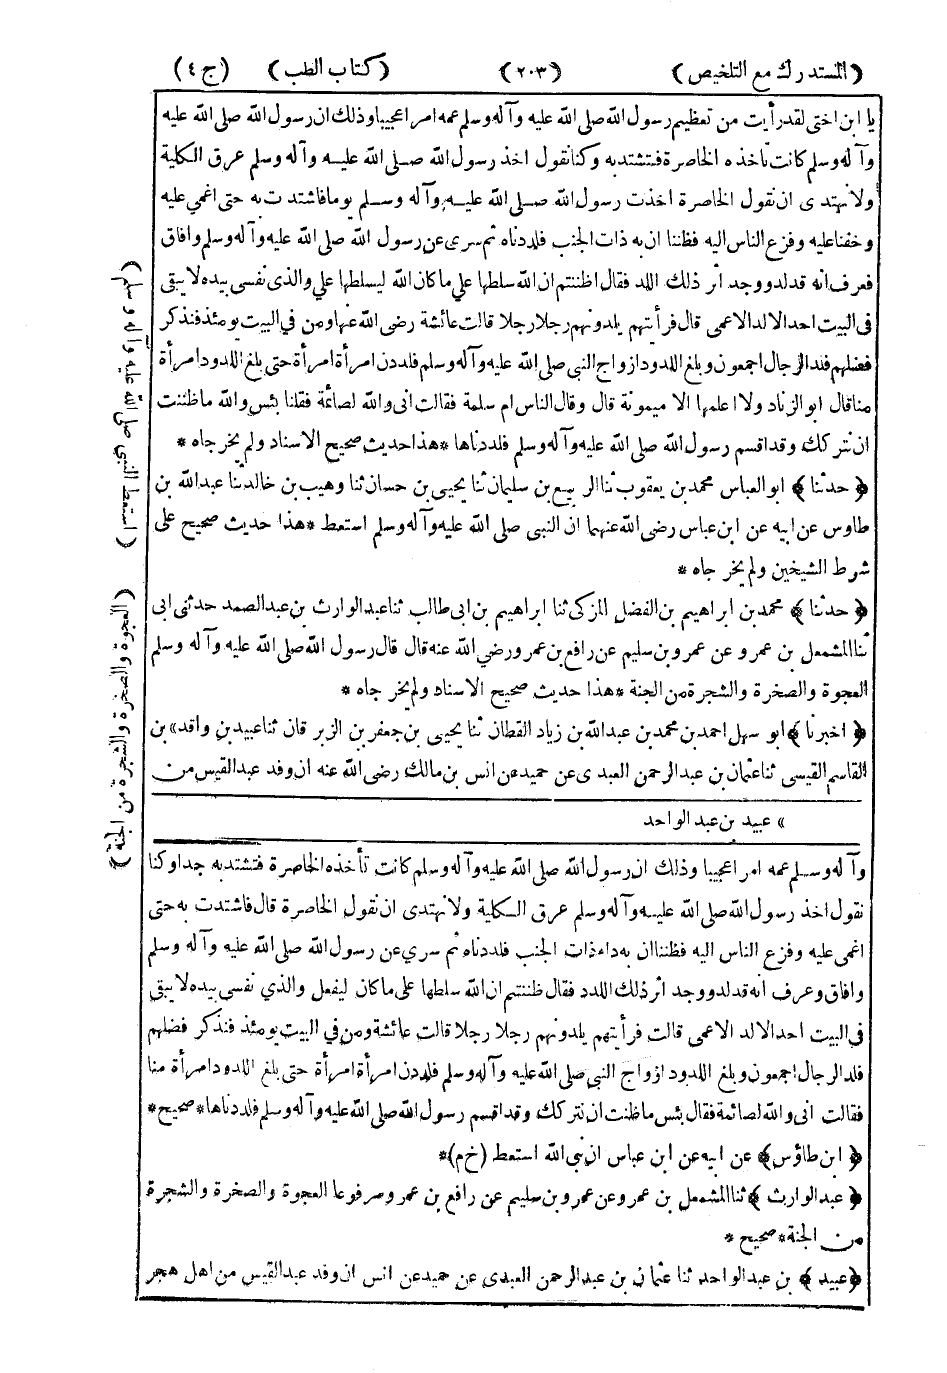 ( المستدرك مع التلخيص ) ( ٢٠٣ ) ( كتاب الطب ) ( ج ٤ )
يا ابن اختى لقد رأيت من تعظيم رسول الله صلى الله عليه وآله وسلم عمه امرا عجيبا وذلك ان رسول الله صلى الله عليه
وآله وسلم كانت تأخذه الخاصرة فتشتد به وكنا نقول اخذ رسول الله صلى الله عليه وآله وسلم عرق الكلية
ولا نهتدى ان نقول الخاصرة اخذت رسول الله صلى الله عليه وآله وسلم يوما فاشتدت به حتى اغمى عليه
وخفنا عليه وفزع الناس اليه فظننا ان به ذات الجنب فلددناه ثم سرى عن رسول الله صلى الله عليه وآله وسلم وافاق
فعرف انه قد لد ووجد اثر ذلك اللد فقال اظننتم ان الله سلطها علي ما كان الله ليسلطها علي والذى نفسى بيده لا يبقى
فى البيت احد الا لد الا عمى قال فرأيتهم يلدونهم رجلا رجلا قالت عائشة رضى الله عنها ومن في البيت يومئذ فتذكر
فضلهم فلد الرجال اجمعون وبلغ اللدود ازواج النبى صلى الله عليه وآله وسلم فلددن امرأة امرأة حتى بلغ اللدود امرأة
منا قال ابو الزناد ولا اعلمها الا ميمونة قال وقال الناس ام سلمة فقالت انى والله لصائمة فقلنا بئس والله ما ظننت
ان نتركك وقد اقسم رسول الله صلى الله عليه وآله وسلم فلددناها * هذا حديث صحيح الاسناد ولم يخرجاه *
﴿ حدثنا ﴾ ابو العباس محمد بن يعقوب ثنا الربيع بن سليمان ثنا يحيى بن حسان ثنا وهيب بن خالد ثنا عبد الله بن
طاوس عن ابيه عن ابن عباس رضى الله عنهما ان النبى صلى الله عليه وآله وسلم استعط * هذا حديث صحيح على
شرط الشيخين ولم يخرجاه *
﴿ حدثنا ﴾ محمد بن ابراهيم بن الفضل المزكى ثنا ابراهيم بن ابى طالب ثنا عبد الوارث بن عبد الصمد حدثنى ابى
ثنا المشمعل بن عمرو عن عمرو بن سليم عن رافع بن عمرو رضي الله عنه قال قال رسول الله صلى الله عليه وآله وسلم
العجوة والصخرة والشجرة من الجنة * هذا حديث صحيح الاسناد ولم يخرجاه *
﴿ اخبرنا ﴾ ابو سهل احمد بن محمد بن عبد الله بن زياد القطان ثنا يحيى بن جعفر بن الزبرقان ثنا عبيد بن واقد » بن
القاسم القيسى ثنا عثمان بن عبد الرحمن العبدى عن حميد عن انس بن مالك رضى الله عنه ان وفد عبد القيس من
» عبيد بن عبد الواحد
وآله وسلم عمه امرا عجيبا وذلك ان رسول الله صلى الله عليه وآله وسلم كانت تأخذه الخاصرة فتشتد به جدا وكنا
نقول اخذ رسول الله صلى الله عليه وآله وسلم عرق الكلية ولا نهتدى ان نقول الخاصرة قال فاشتدت به حتى
اغمى عليه وفزع الناس اليه فظننا ان به داء ذات الجنب فلددناه ثم سري عن رسول الله صلى الله عليه وآله وسلم
وافاق وعرف انه قد لد ووجد اثر ذلك اللدد فقال ظننتم ان الله سلطها على ما كان ليفعل والذي نفسى بيده لا يبقي
فى البيت احد الا لد الا عمى قالت فرأيتهم يلدونهم رجلا رجلا قالت عائشة ومن في البيت يومئذ فتذكر فضلهم
فلد الرجال اجمعون وبلغ اللدود ازواج النبي صلى الله عليه وآله وسلم فلددن امرأة امرأة حتى بلغ اللدود امرأة منا
فقالت انى والله لصائمة فقال بئس ما ظننت ان نتركك وقد اقسم رسول الله صلى الله عليه وآله وسلم فلددناها * صحيح *
﴿ ابن طاؤس ﴾ عن ابيه عن ابن عباس ان نبي الله استعط ( خ م ) *
﴿ عبد الوارث ﴾ ثنا المشمعل بن عمرو عن عمرو بن سليم عن رافع بن عمرو مرفوعا العجوة والصخرة والشجرة
من الجنة * صحيح *
﴿ عبيد ﴾ بن عبد الواحد ثنا عثمان بن عبد الرحمن العبدى عن حميد عن انس ان وفد عبد القيس من اهل هجر
( استعط النبى صلى الله عليه وآله وسلم )
( العجوة والصخرة والشجرة من الجنة )